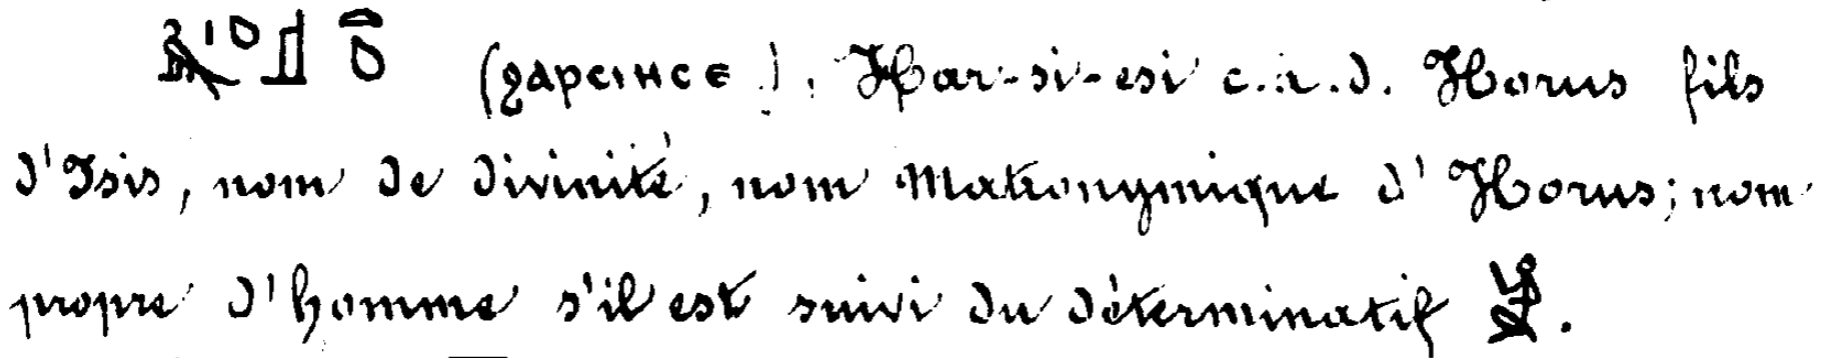 (ϩⲁⲣⲥⲓⲏⲥⲉ), Har-si-esi c.a.d. Horus fils
d'Isis, nom de divinité, nom Matronymique d'Horus; nom
propre d'homme s'il est suivi du déterminatif